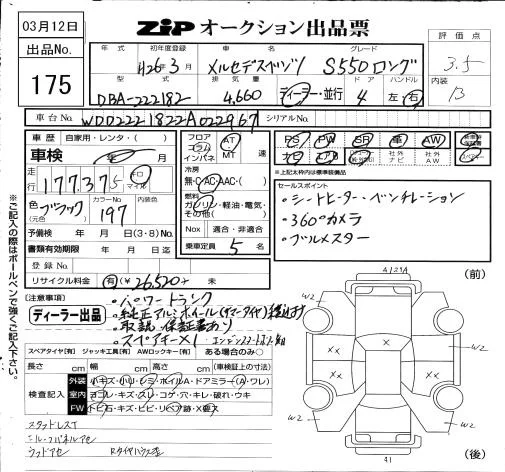 03月12日
ZIP オークション出品票
出品No.
175
年式 初年度登録 車名 グレード
H26年3月 メルセデスベンツ S550ロング
評価点
3.5
内装
B
型式 排気量 ドア ハンドル
DBA-222182 4,660 ディーラー・並行 4 左・右
車台No. WDD2221822A022967 シリアルNo.
車歴 自家用・レンタ・( )
車検 年 月
走行 177,375 キロ マイル
色(元色) ブラック カラーNo. 197
予備検 年 月 日(3・8)No.
書類有効期限 年 月 日迄
登録No.
リサイクル料金 有(¥26,520) 未
フロア コラム インパネ AT MT 速
冷房
無・C・AC・AAC・( )
燃料
ガソリン・軽油・電気・その他( )
Nox 適合・非適合
乗車定員 5 名
PS PW SR 革 AW
ナビ エアB 社外ナビ 社外AW
*上記太枠内は標準装備品
セールスポイント
・シートヒーター・ベンチレーション
・360°カメラ
・ブルメスター
(注意事項)
ディーラー出品
・パワートランク
・取説、保証書あり
・スペアキー×1
スペアタイヤ[有] ジャッキ工具[有] AWロックキー[有] ある場合のみ○
長さ cm 幅 cm 高さ cm (車検証上の寸法)
検査記入
外装 小キズ・小リ・シミ・ホイルA・ドアミラー(A・ワレ)
室内 ヨゴレ・キズ・スレ・コゲ・穴・キレ・破れ・ウキ
FW トビ石・キズ・ヒビ・リペア跡・X要ス
スタッドレスT
※ご記入の際はボールペンで強くご記入下さい。
(前)
(後)
W2
W2
W2
W2
W2
W2
××
××
××